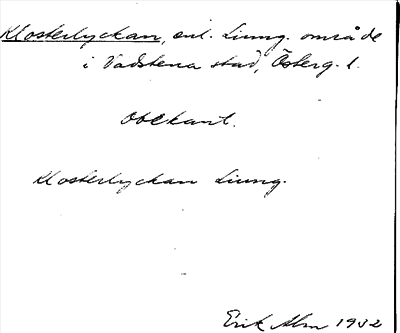 Klosterlyckan, enl. Ljung. område
i Vadstena stad, Österg. l.
Obekant.
Klosterlyckan Ljung.
Erik Alm 1932